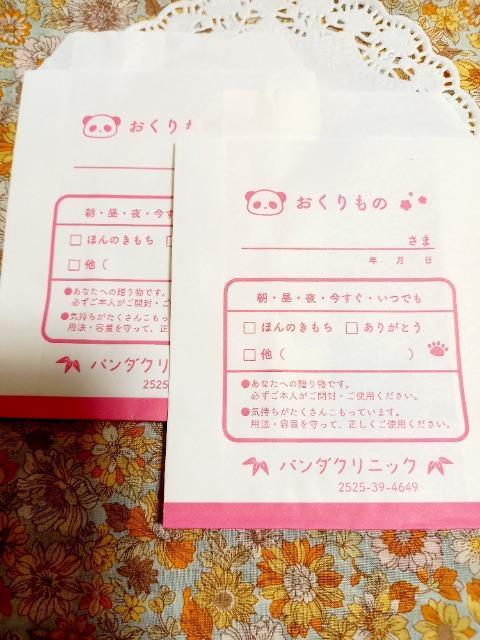 おくりもの
朝・昼・夜・今す
ほんのきもち
他（
●あなたへの贈り物です。
必ずご本人がご開封・ご
●気持ちがたくさんこもっ
用法・容量を守って、正
パンダクリ
2525
おくりもの
さま
年 月 日
朝・昼・夜・今すぐ・いつでも
ほんのきもち ありがとう
他（ ）
●あなたへの贈り物です。
必ずご本人がご開封・ご使用ください。
●気持ちがたくさんこもっています。
用法・容量を守って、正しくご使用ください。
パンダクリニック
2525-39-4649